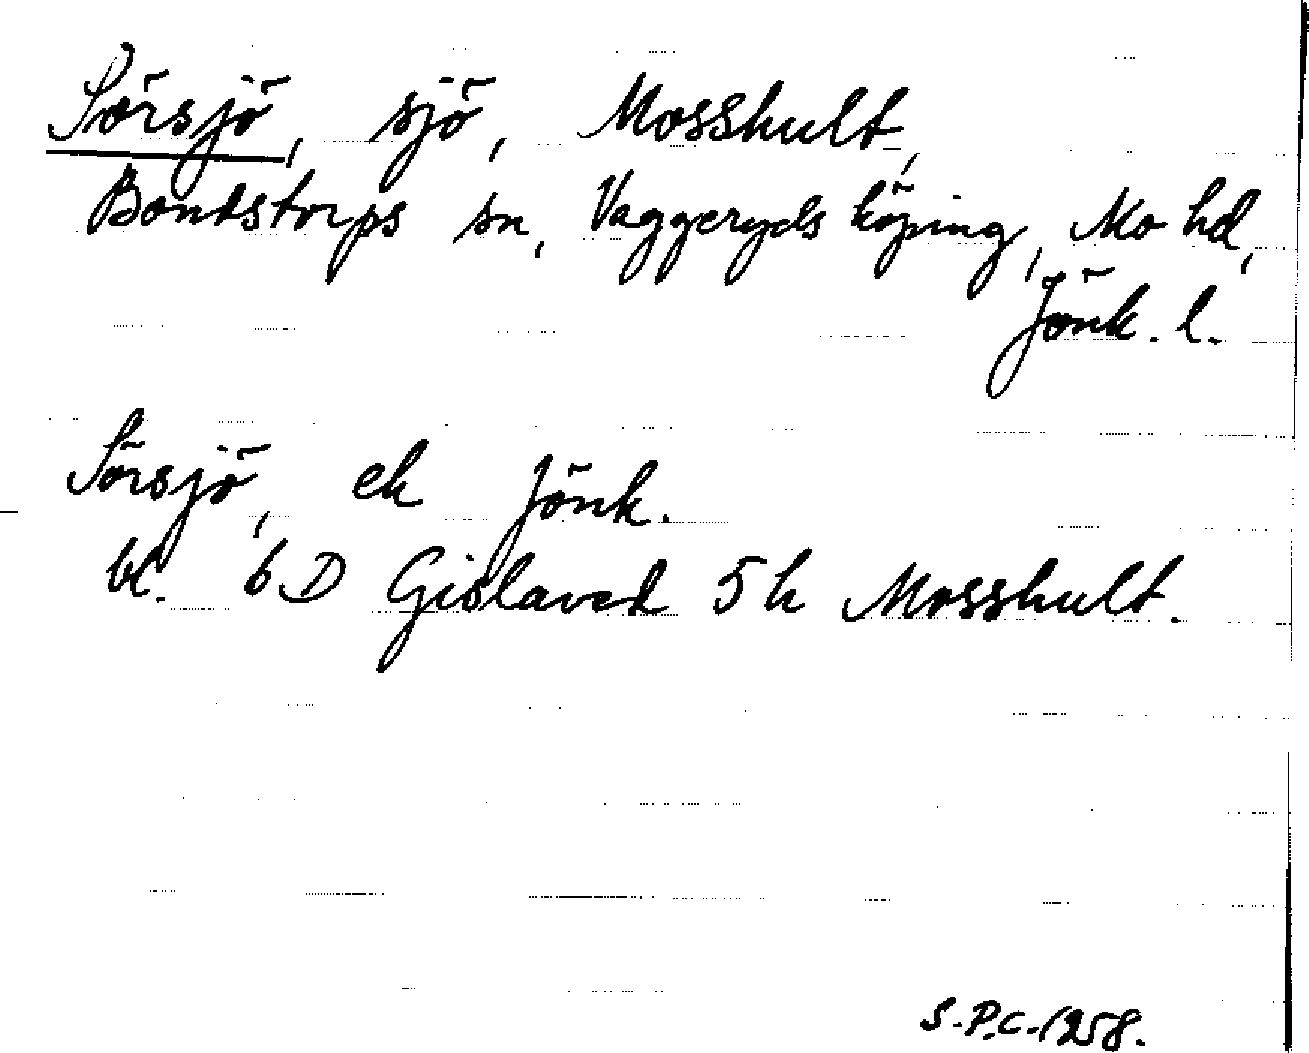 Sörsjö, sjö, Mosshult,
Bondstorps sn, Vaggeryds köping, Mo hd,
Jönk. l.
Sörsjö, ek Jönk.
bl. 6 D Gislaved 5 h Mosshult.
S.P.C. 1258.